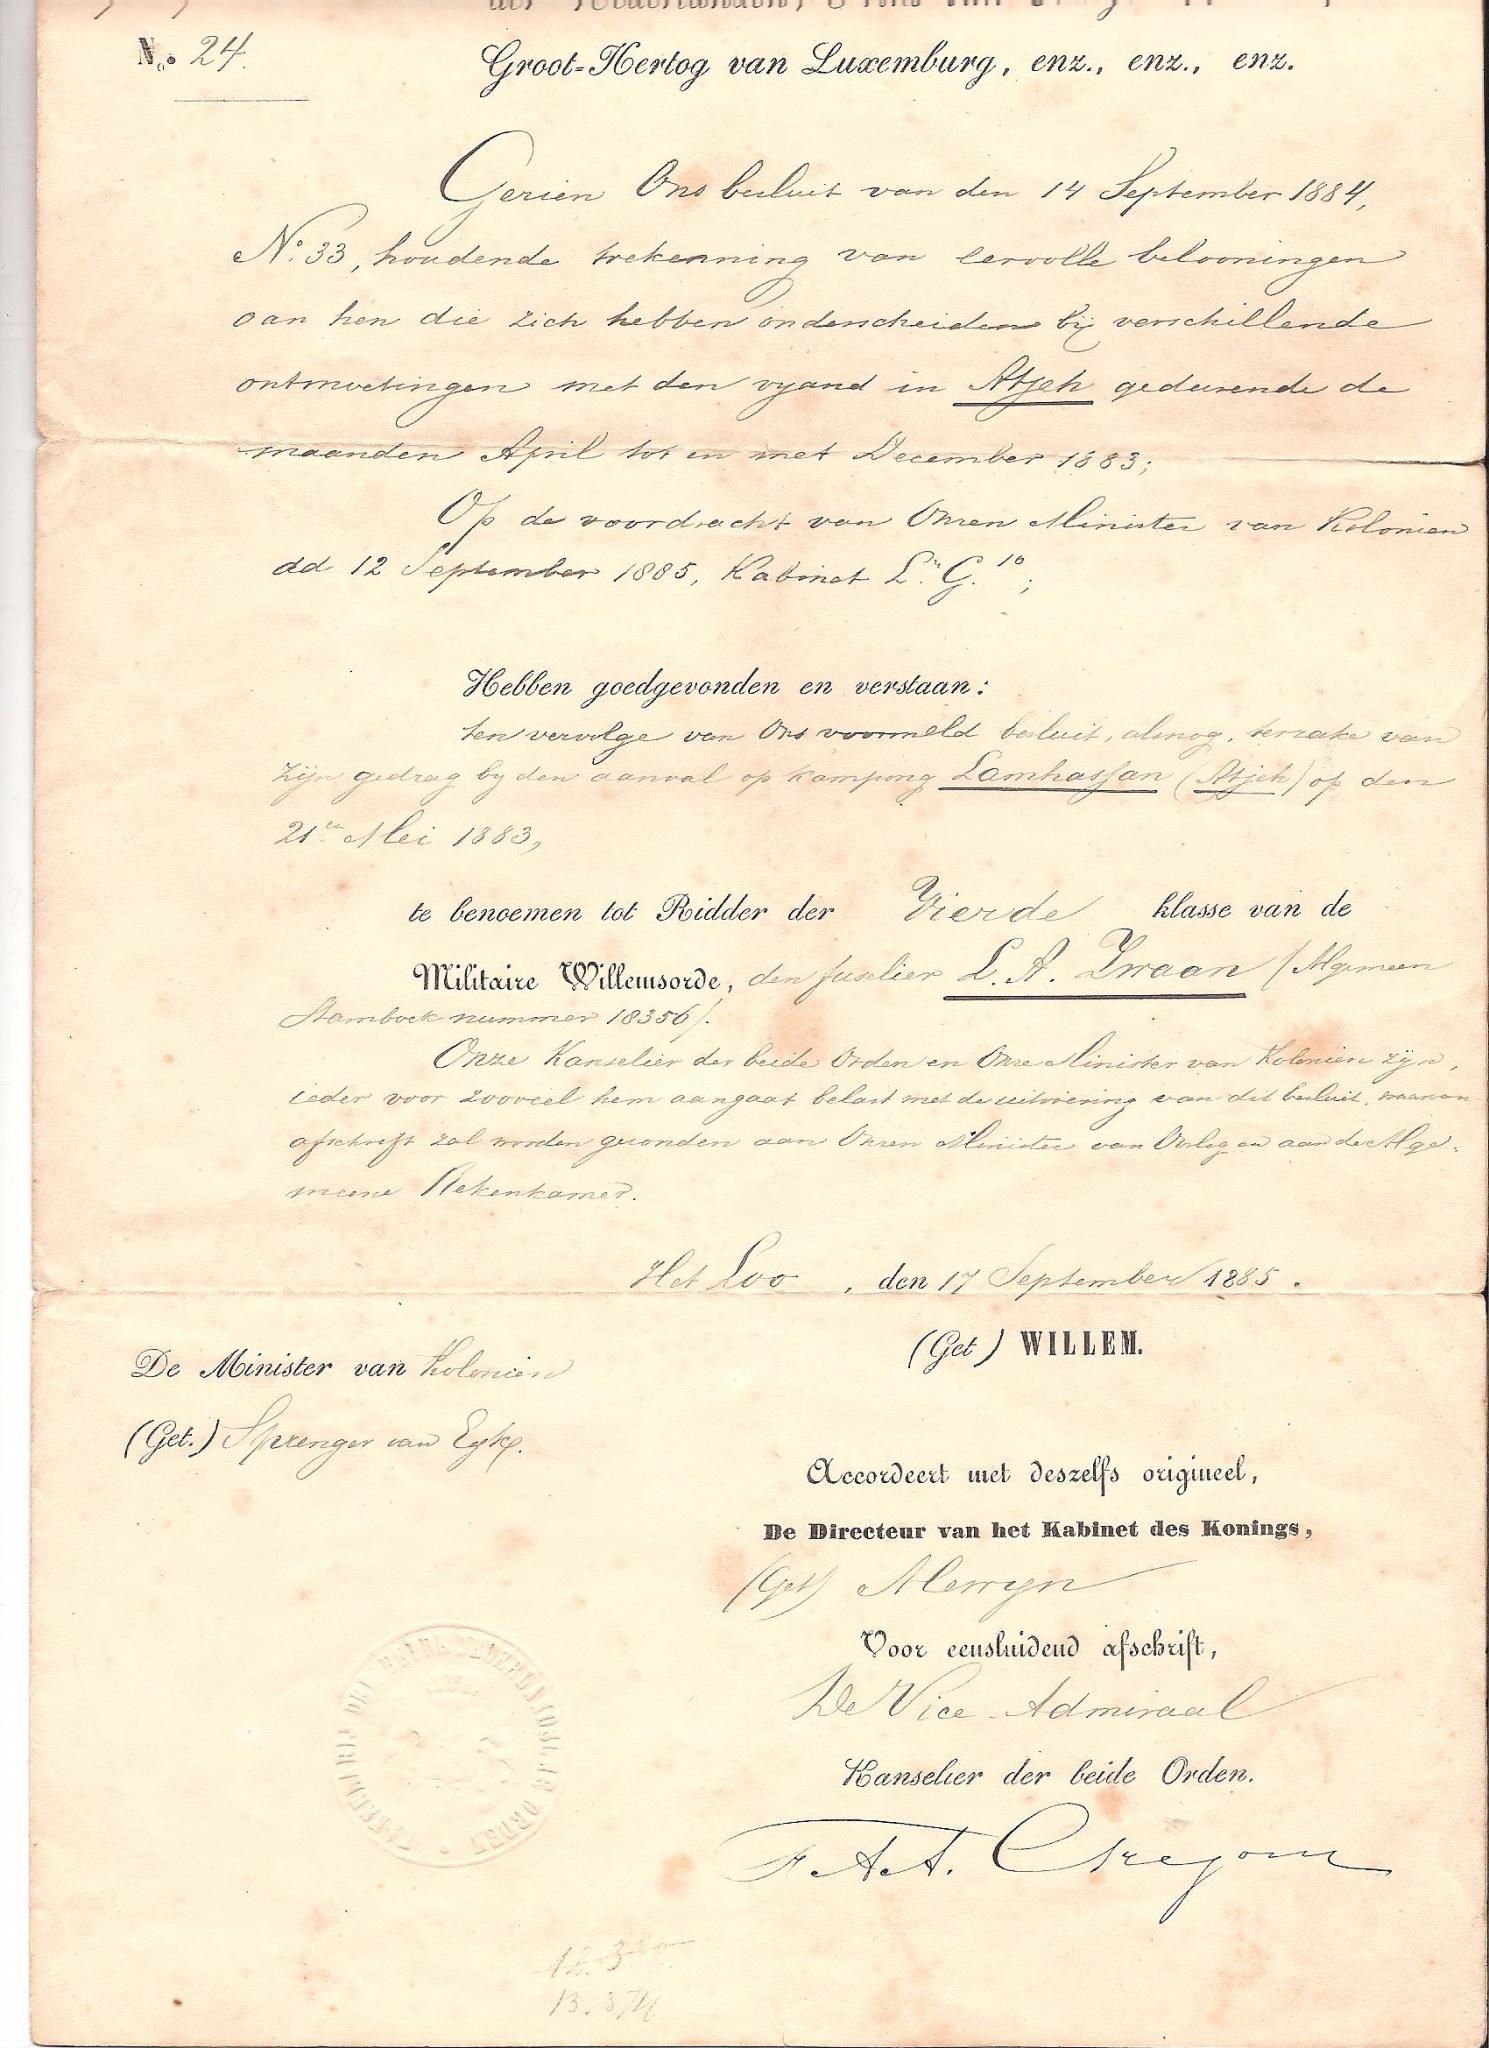 der Nederlanden,
N.o 24.
Groot-Hertog van Luxemburg, enz., enz., enz.
Gezien Ons besluit van den 14 September 1884,
No. 33, houdende toekenning van eervolle belooningen
aan hen die zich hebben onderscheiden bij verschillende
ontmoetingen met den vyand in Atjeh gedurende de
maanden April tot en met December 1883;
Op de voordracht van Onzen Minister van Kolonien
dd 12 September 1885, Kabinet Lr. G. 10;
Hebben goedgevonden en verstaan:
ten vervolge van Ons voormeld besluit, alsnog, terzake van
zijn gedrag by den aanval op kampong Lamhassan (Atjeh) op den
21en Mei 1883,
te benoemen tot Ridder der Vierde klasse van de
Militaire Willemsorde, den fuselier L. A. Zwaan /Algemeen
Stamboek nummer 18356/.
Onze Kanselier der beide Orden en Onze Minister van Kolonien zijn,
ieder voor zooveel hem aangaat belast met de uitvoering van dit besluit, waarvan
afschrift zal worden gezonden aan Onzen Minister van Oorlog en aan de Alge-
meene Rekenkamer.
Het Loo, den 17 September 1885.
(Get) WILLEM.
De Minister van Kolonien
(Get.) Sprenger van Eyk.
Accordeert met deszelfs origineel,
De Directeur van het Kabinet des Konings,
(Get)
Voor eensluidend afschrift,
De Vice-Admiraal
Kanselier der beide Orden.
F. A. A. Gregory
KANSELARIJ DER NEDERLANDSCHE ORDEN